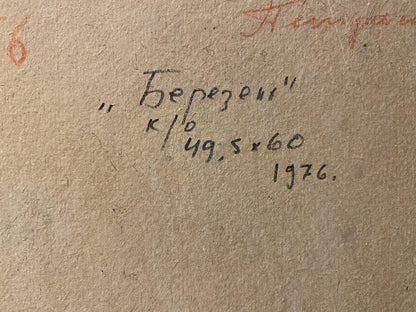 6
„Березень"
к/о
49,5×60
1976.